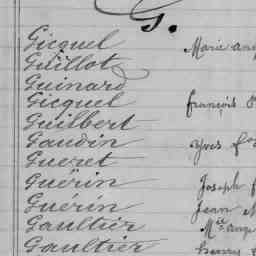 G.
Gicquel Marie Ang
Guillot
Guinard
Gicquel François
Guilbert
Gaudin Yves
Gueret
Guérin Joseph
Guérin Jean M
Gaultier Mie Ange
Gaultier henry